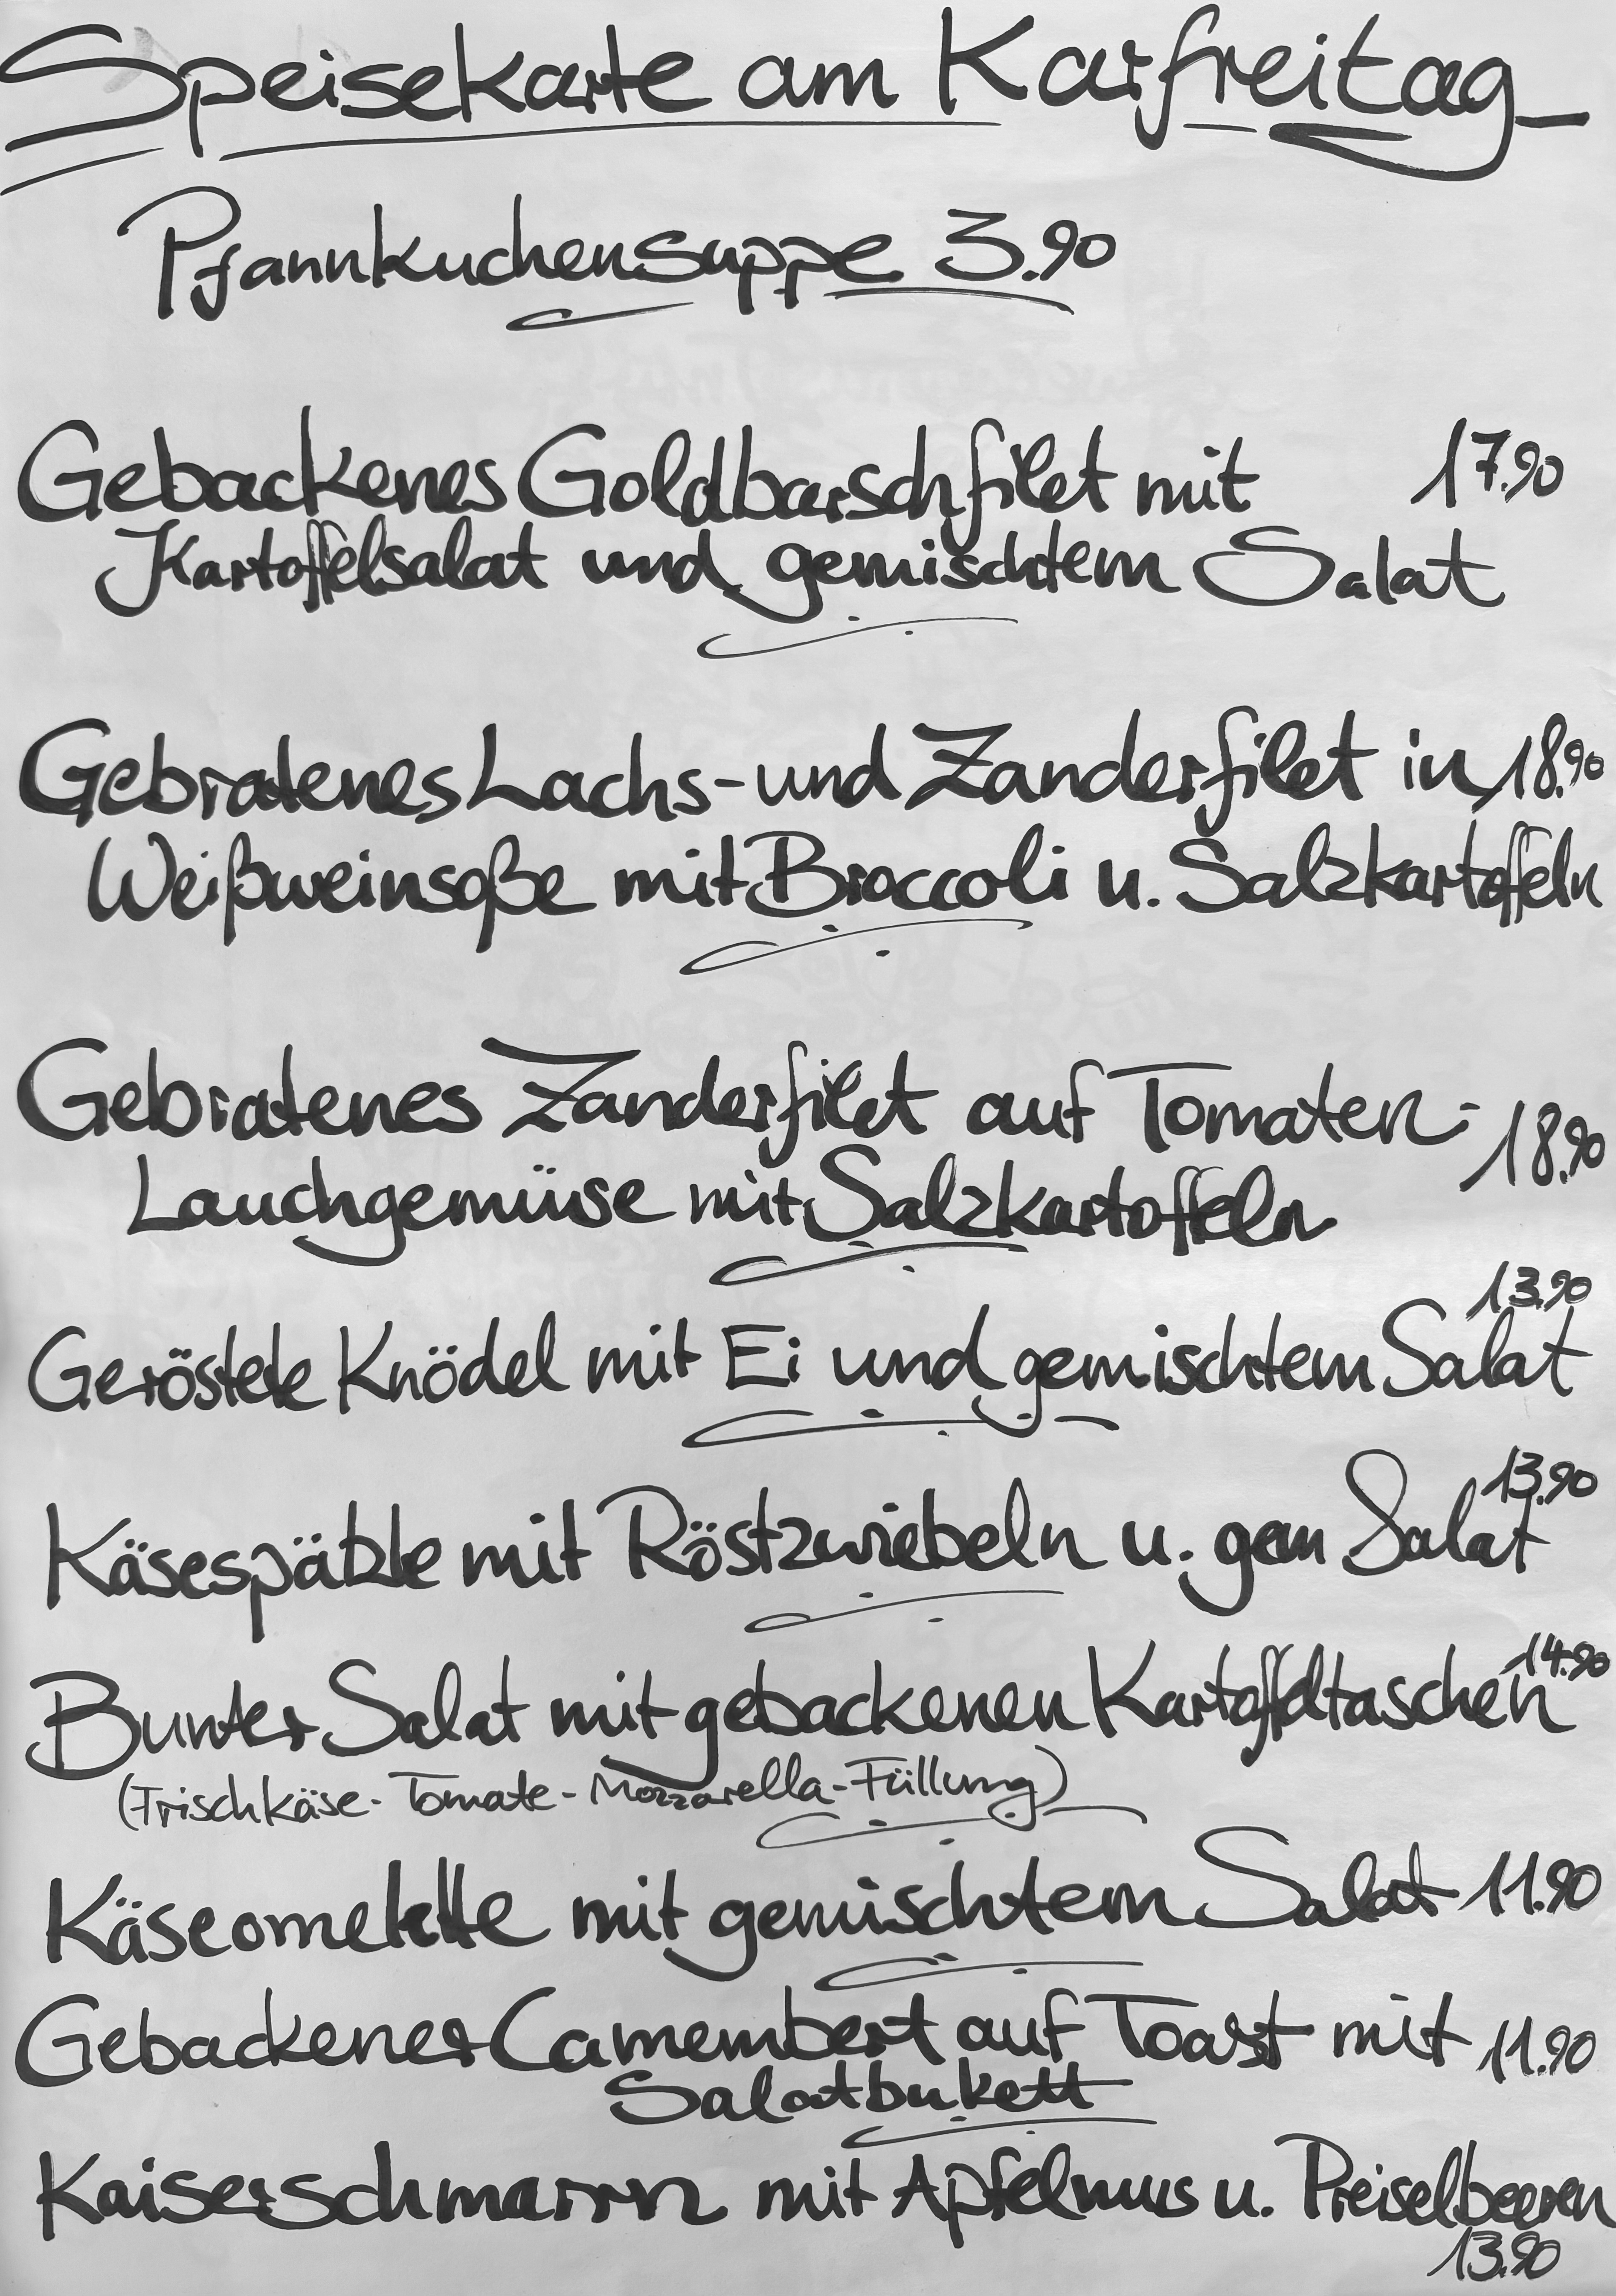 Speisekarte am Karfreitag
Pfannkuchensuppe 3.90
Gebackenes Goldbarschfilet mit 17.90
Kartoffelsalat und gemischtem Salat
Gebratenes Lachs- und Zanderfilet in 18.90
Weißweinsoße mit Broccoli u. Salzkartoffeln
Gebratenes Zanderfilet auf Tomaten- 18.90
Lauchgemüse mit Salzkartoffeln
13.90
Geröstete Knödel mit Ei und gemischtem Salat
13.90
Käsespätzle mit Röstzwiebeln u. gem Salat
14.90
Bunter Salat mit gebackenen Kartoffeltaschen
(Frischkäse- Tomate- Mozzarella-Füllung)
Käseomelette mit gemischtem Salat 11.90
Gebackener Camembert auf Toast mit 11.90
Salatbukett
Kaiserschmarrn mit Apfelmus u. Preiselbeeren
13.90